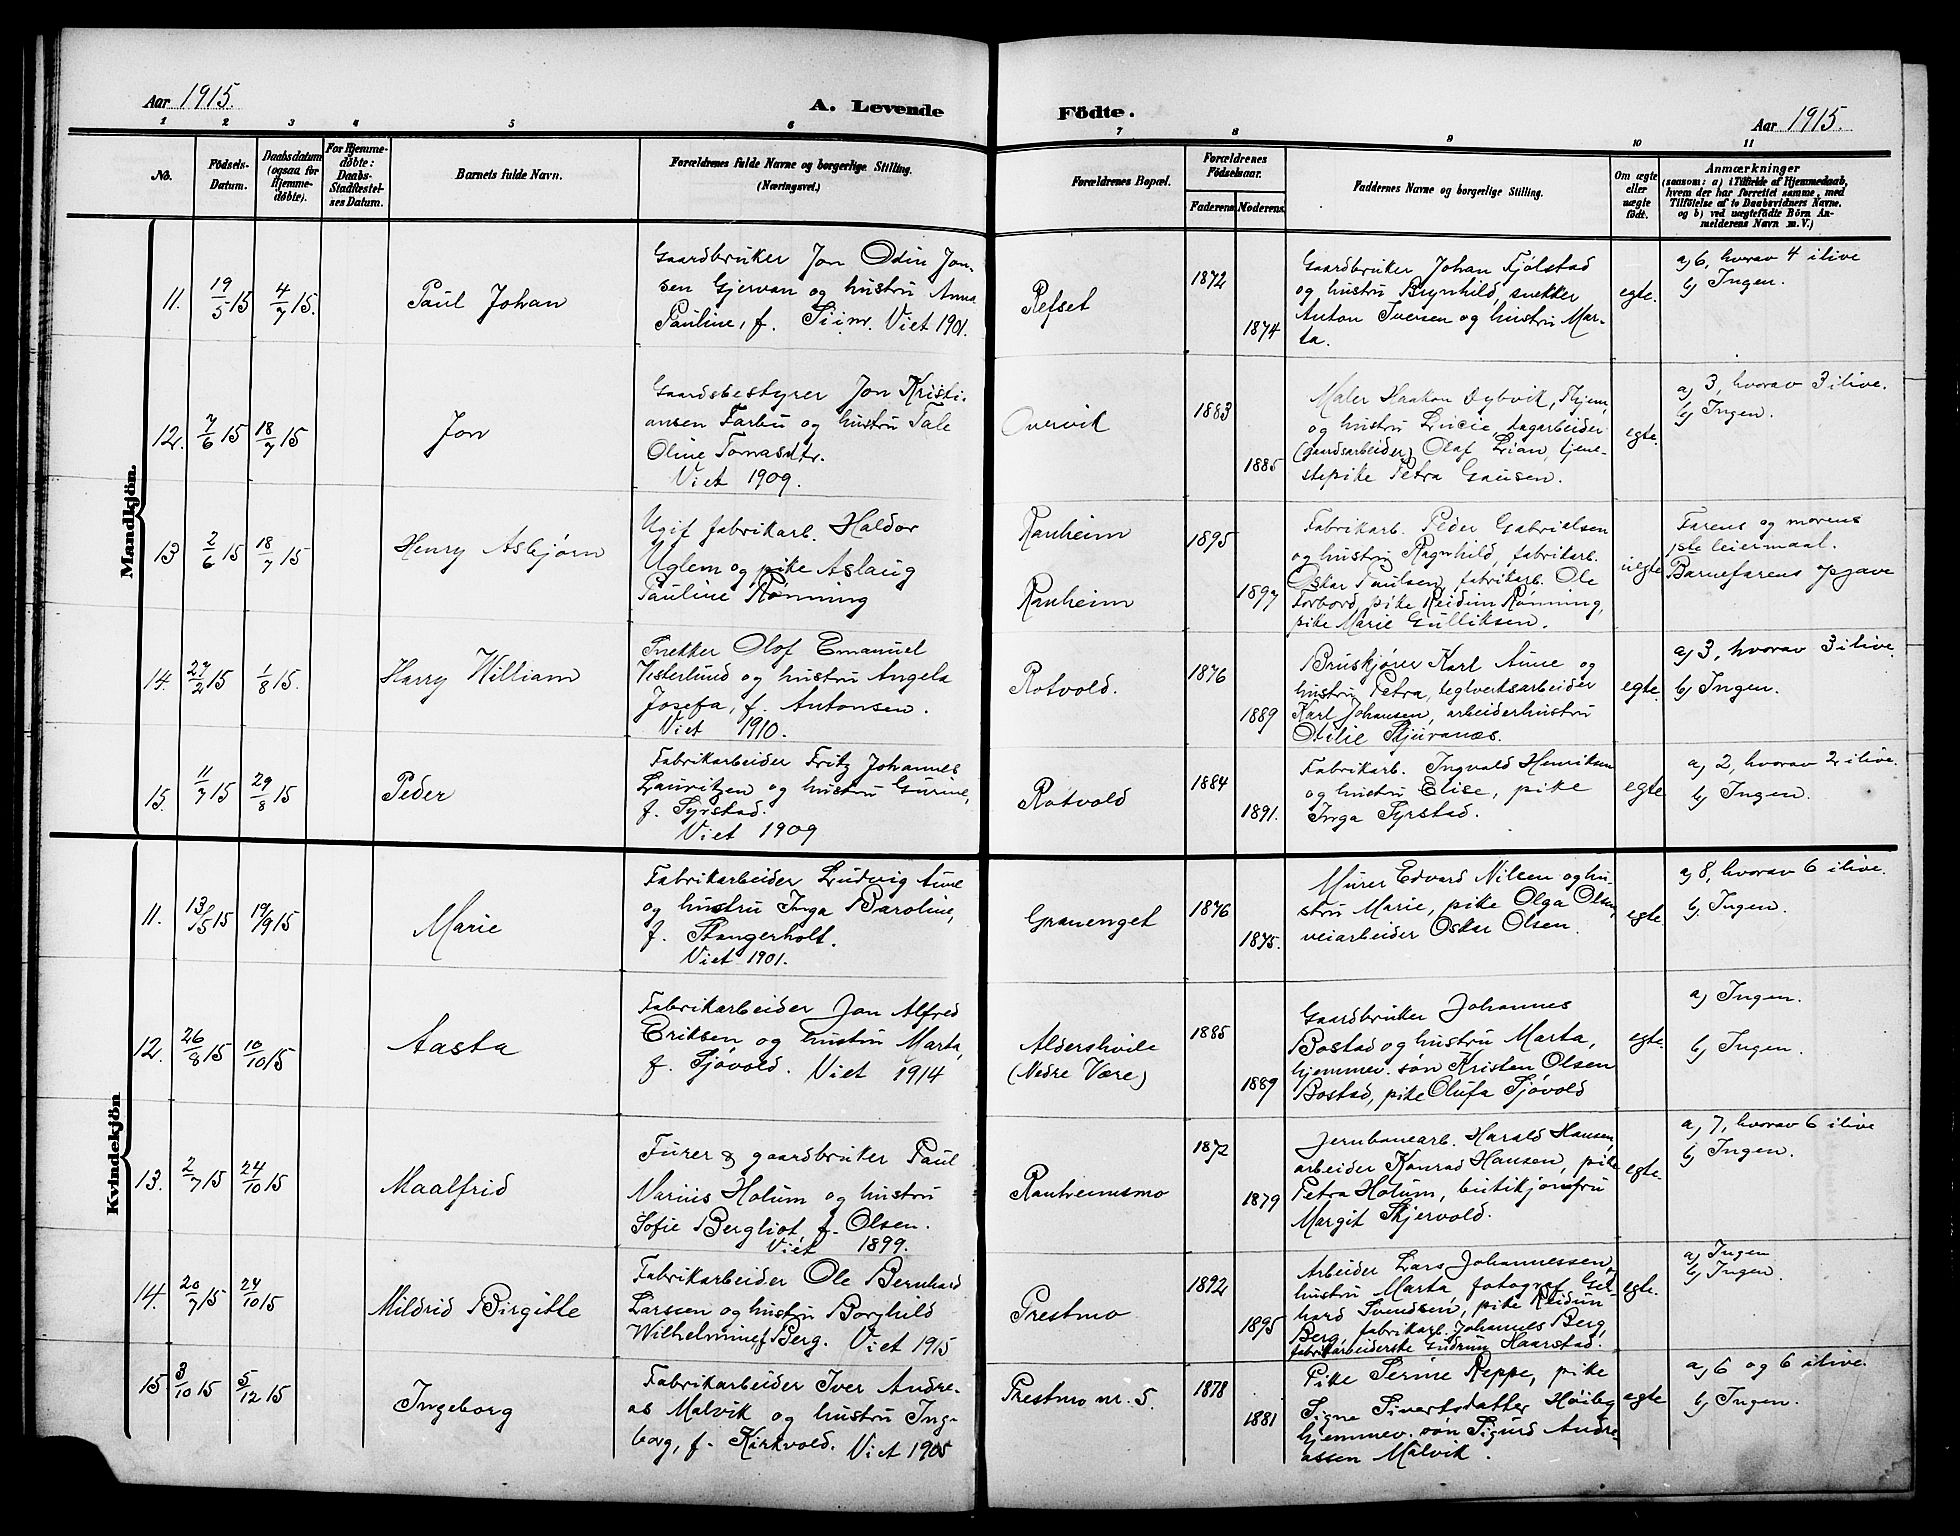 Aar 1915.
A. Levende
Födte.
Aar 1915.
1 2 3 4 5 6 7 8 9 10 11
No.
Födsels-
Datum.
Daabsdatum
(ogsaa for
Hjemme-
døbte).
For Hjemme-
døbte:
Daabs-
Stadfæstel-
ses Datum.
Barnets fulde Navn.
Forældrenes fulde Navne og borgerlige Stilling.
(Næringsvei.)
Forældrenes Bopæl.
Forældrenes
Födselsaar.
Faderens
Moderens.
Faddernes Navne og borgerlige Stilling.
Om ægte
eller
uægte
født.
Anmærkninger
(saasom: a) i Tilfælde af Hjemmedaab,
hvem der har forrettet samme, med
Tilföielse af to Daabsvidners Navne.
og b) ved uægtefödte Börn An-
melderens Navn m. V.)
Mandkjön.
11.
19/5 15
4/7 15.
Paul Johan
Gaardbruker Jon Odin Jon-
sen Gjervan og hustru Anna
Pauline, f. Viet 1901.
Refset
1872
1874
Gaardbruker Johan Fjølstad
og hustru Brynhild, snekker
Anton Iversen og hustru Mar-
ta.
egte.
a) 6, hvorav 4 ilive
b) Ingen.
12.
7/6 15
18/7 15
Jon
Gaardsbestyrer Jon Kristi-
ansen Farbu og hustru Tale
Oline Tomasdtr.
Viet 1909.
Overvik
1883
1885
Maler Haakon Dybvik, Tjem,
og hustru Lucie, dagarbeider
(gaardsarbeider) Olaf Lian, tjene-
stepike Petra Gausen.
egte.
a) 3, hvorav 3 ilive.
b) Ingen.
13
2/6 15
18/7 15
Henry Asbjørn
Ugif. fabrikarb. Haldor
Uglem og pike Aslaug
Pauline Rønning
Ranheim
Ranheim
1895
1897
Fabrikarb. Peder Gabrielsen
og hustru Ragnhild, fabrikarb.
Oskar Paulsen, fabrikarb. Ole
Forbord, pike Reidun Rønning,
pike Marie Gulliksen.
uegte
Farens og morens
1ste leiermaal.
Barnefarens opgave
14.
27/2 15
1/8 15.
Harry William
Snekker Olof Emanuel
Vesterlund og hustru Angela
Josefa, f. Antonsen.
Viet 1910.
Rotvold.
1876
1889
Bruskjører Karl Aune og
hustru Petra, teglverksarbeider
Karl Johansen, arbeiderhustru
Otilie Skjevanæs.
egte.
a) 3, hvorav 3 ilive.
b) Ingen.
15.
11/7 15
29/8 15
Peder
Fabrikarbeider Fritz Johannes
Lauritzen og hustru Gurine,
f. Syrstad.
Viet 1909
Rotvold
1884
1891.
Fabrikarb. Ingvald Henriksen
og hustru Elise, pike
Inga Syrstad.
egte
a) 2, hvorav 2 ilive.
b) Ingen.
Kvindekjön
11.
13/5 15
19/9 15
Marie
Fabrikarbeider Ludvig Aune
og hustru Inga Baroline,
f. Stangerholt.
Viet 1901.
Granenget
1876
1875.
Murer Edvard Nilsen og hu-
stru Marie, pike Olga Olsen,
veiarbeider Oskar Olsen.
egte.
a) 8, hvorav 6 ilive.
b) Ingen.
12.
26/8 15
10/10 15
Aasta
Fabrikarbeider Jon Alfred
Eriksen og hustru Marta,
f. Sjøvold. Viet 1914
Aldershvile
(Nedre Være)
1885
1889
Gaardbruker Johannes
Bostad og hustru Marta,
hjemmev. søn Kristen Olsen
Bostad, pike Olufa Sjøvold
egte.
a) Ingen.
b) Ingen.
13.
2/7 15
24/10 15
Maalfrid
Furer & gaardbruker Paul
Marius Holum og hustru
Sofie Bergliot, f. Olsen.
Viet 1899.
Ranheimsmo
1872
1879
Jernbanearb. Harald Hansen,
arbeider Konrad Hansen, pike
Petra Holum, butikjomfru
Margit Skjervold.
egte.
a) 7, hvorav 6 ilive
b) Ingen.
14.
20/7 15
24/10 15
Mildrid Birgitte
Fabrikarbeider Ole Bernhard
Larssen og hustru Borghild
Wilhelmine, f. Berg. Viet 1915
Prestmo
1892
1895
Arbeider Lars Johannessen, og
hustru Marta, fotograf Gel-
hard Svendsen, pike Reidun
Berg, fabrikarb. Johannes Berg,
fabrikarbeiderske Gudrun Haarstad.
egte.
a) Ingen
b) Ingen.
15
3/10 15
5/12 15
Ingeborg
Fabrikarbeider Iver Andre-
as Malvik og hustru Inge-
borg, f. Kirkvold. Viet 1905
Prestmo nr. 5.
1878
1881
Pike Serine Reppe, pike
Signe Sivertsdatter Høiby
hjemmev. søn Sigurd Andre-
assen Malvik.
egte
a) 6 og 6 ilive.
b) Ingen.